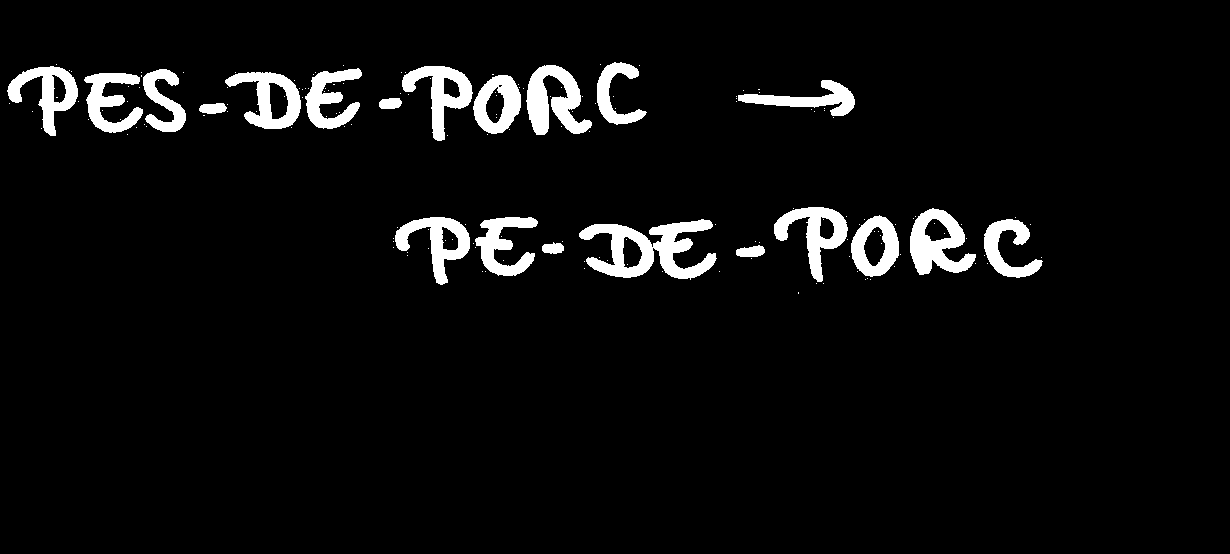 PES-DE-PORC →
PE-DE-PORC